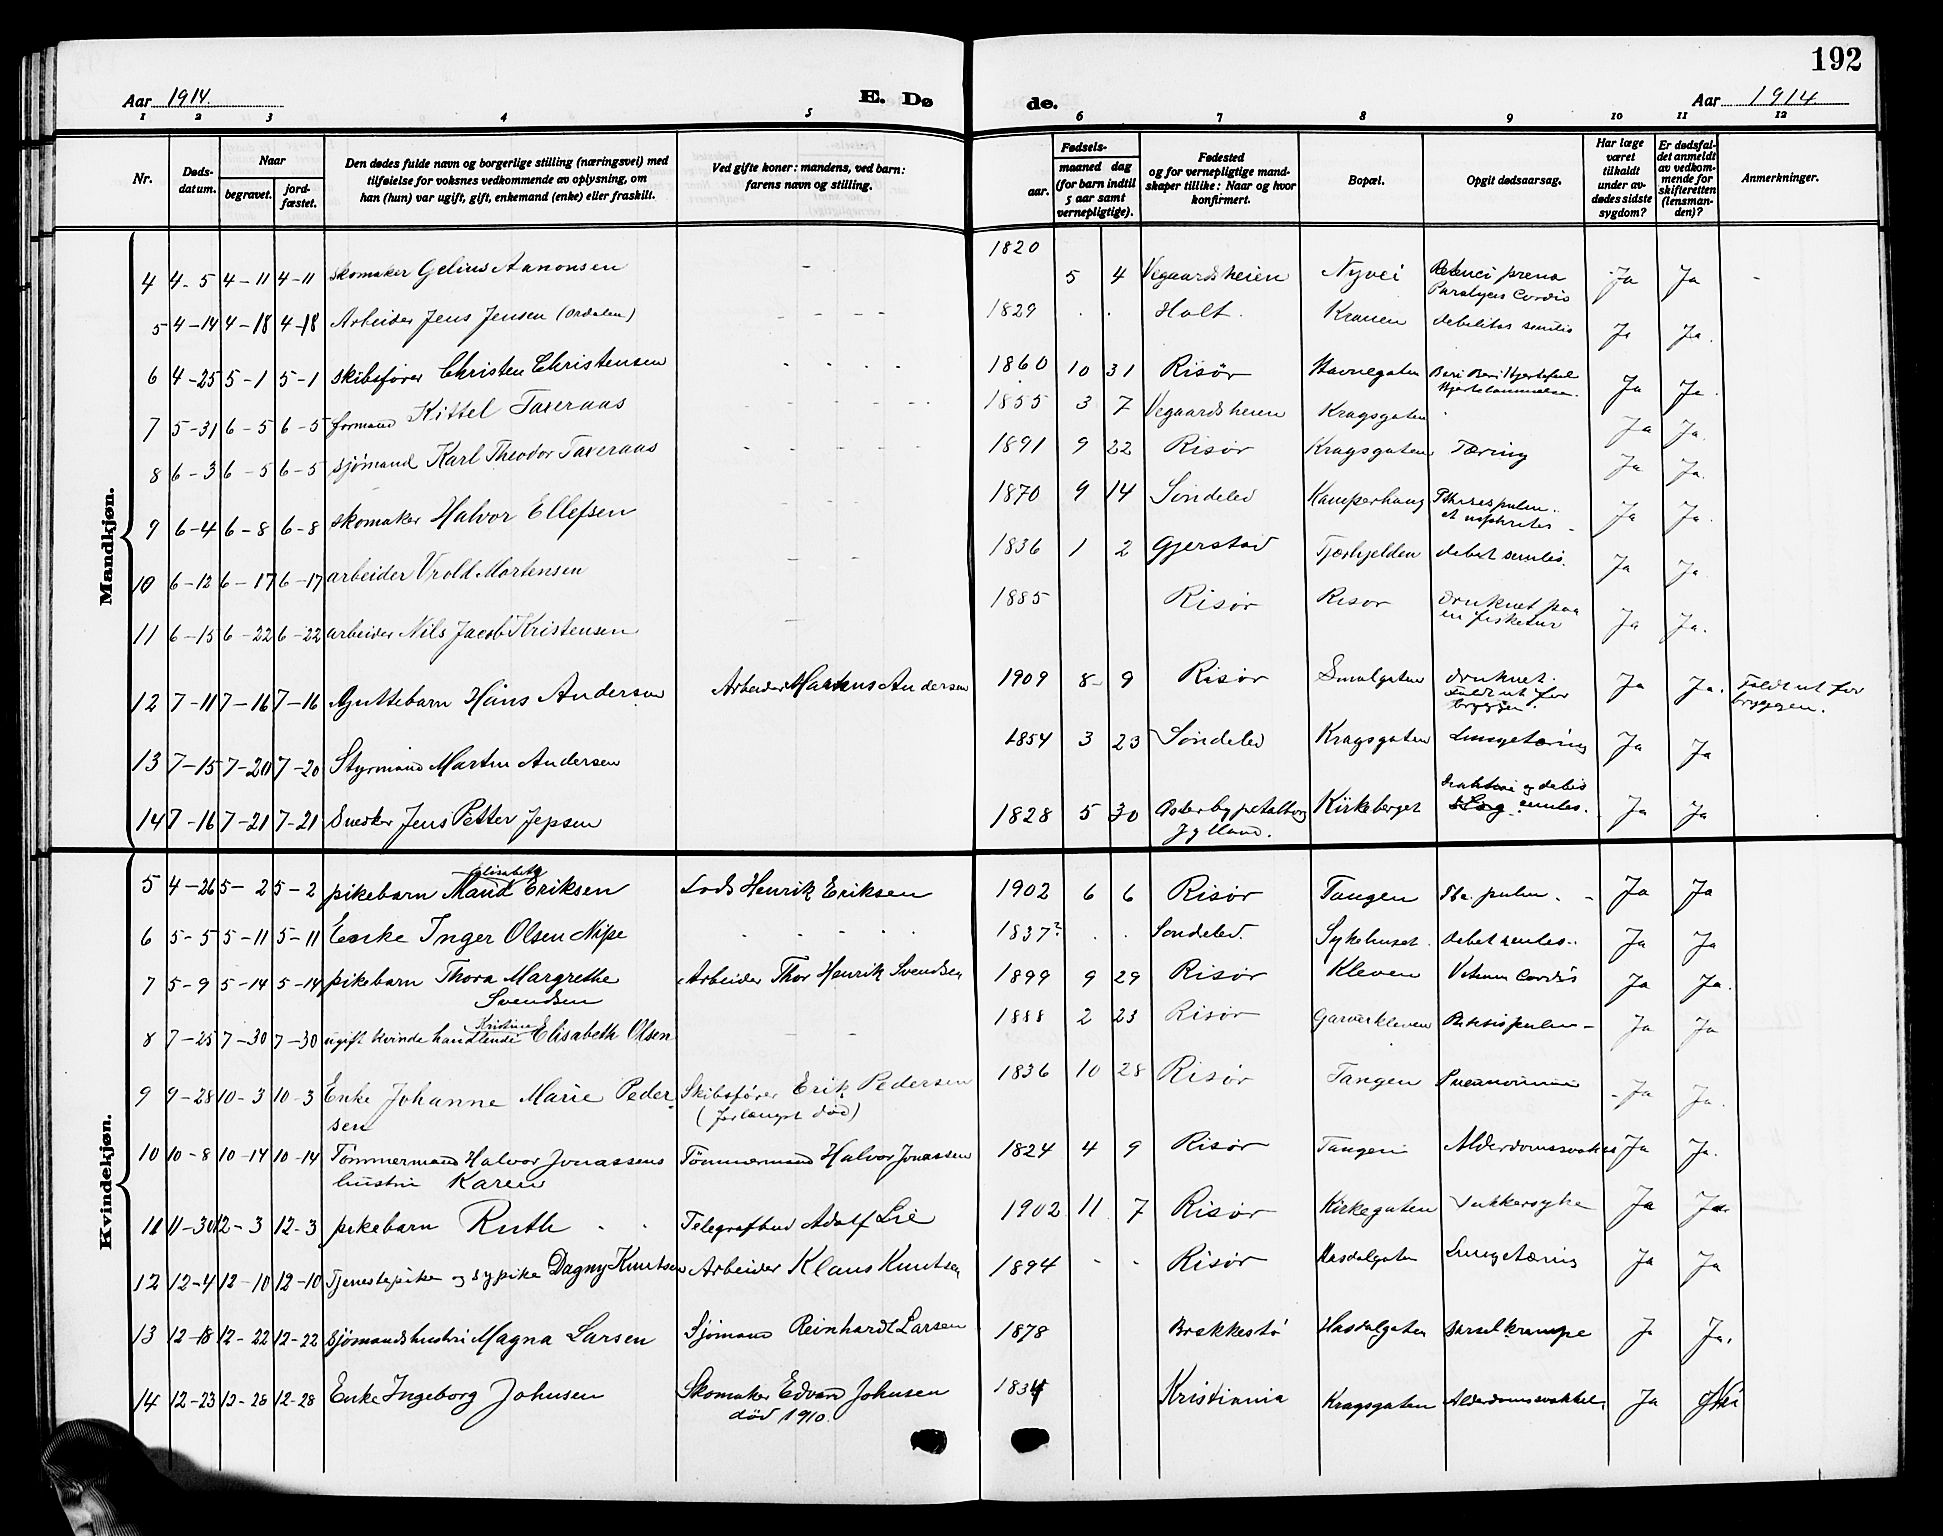 192
Aar 1914. E. Dø de. Aar 1914.
1 2 3 4 5 6 7 8 9 10 11 12
Nr. Døds-datum. Naar begravet. jord-fæstet. Den dødes fulde navn og borgerlige stilling (næringsvei) med tilføielse for voksnes vedkommende av oplysning, om han (hun) var ugift, gift, enkemand (enke) eller fraskilt. Ved gifte koner: mandens, ved barn: farens navn og stilling. Fødsels- aar. maaned dag (for barn indtil 5 aar samt vernepligtige). Fødested og for vernepligtige mand-skaper tillike: Naar og hvor konfirmert. Bopæl. Opgit dødsaarsag. Har læge været tilkaldt under av-dødes sidste sygdom? Er dødsfal-det anmeldt av vedkom-mende for skifteretten (lensman-den)? Anmerkninger.
Mandkjøn.
4 4-5 4-11 4-11 skomaker Gelius Aanonsen - 1820 5 4 Vegaardsheien Nyvei Paralyces Cordis Ja Ja -
5 4-14 4-18 4-18 Arbeider Jens Jensen (Ordalen) - - - - 1829 . . Holt. Kranen debilitas senilis Ja Ja.
6 4-25 5-1 5-1 skibsfører Christen Christensen - - - - 1860 10 31 Risør Havnegaten Beri Beri Hjertefeil Hjertelammelse. Ja Ja.
7 5-31 6-5 6-5 formand Kittel Taxeraas - - - - - 1855 3 7 Vegaardsheien Kragsgaten Ja Ja.
8 6-3 6-5 6-5 sjømand Karl Theodor Taxeraas - - - - - 1891 9 22 Risør Kragsgaten Tæring Ja Ja.
9 6-4 6-8 6-8 skomaker Halvor Ellefsen - - 1870 9 14 Søndeled Kamperhaug pulm. et nephrites - Ja Ja.
10 6-12 6-17 6-17 arbeider Vrold Mortensen - - 1836 1 2 Gjerstad Tjærhjelden debet senilis. Ja Ja.
11 6-15 6-22 6-22 arbeider Nils Jacob Kristensen - 1885 Risør Risør druknet paa en fisketur Ja Ja.
12 7-11 7-16 7-16 Gjuttebarn Hans Andersen Arbeider Markus Andersen 1909 8- 9 Risør Smalgaten druknet. Faldt ut for bryggen. Ja Ja. Faldt ut for bryggen.
13 7-15 7-20 7-20 Styrmand Martin Andersen 1854 3 23 Søndeled Kragsgaten Lungetæring Ja Ja
14 7-16 7-21 7-21 Snedker Jens Petter Jepsen 1828 5 30 Jylland. Kirkeberget senilis. Ja Ja
Kvindekjøn.
5 4-26 5-2 5-2 pikebarn Maud Elisabeth Eriksen Lods Henrik Eriksen 1902 6 6 Risør Tangen Tbc. pulm. - Ja Ja
6 5-5 5-11 5-11 Enke Inger Olsen Nipe - - - - 1837? . . Søndeled. Sykehuset. debet senilis. Ja Ja
7 5-9 5-14 5-14 pikebarn Thora Margrethe Svendsen Arbeider Thor Henrik Svendsen 1899 9 29 Risør Kleven Vitium Cordis Ja Ja.
8 7-25 7-30 7-30 ugift kvinde handlende Kristine Elisabeth Olsen - - 1888 2 23 Risør Garverkleven pulm - Ja Ja
9 9-28 10-3 10-3 Enke Johanne Marie Pedersen Skibsfører Erik Pedersen (forlængst død) 1836 10 28 Risør Tangen Pneumonie - Ja Ja.
10 10-8 10-14 10-14 Tømmermand Halvor Jonassens hustru Karen Tømmermand Halvor Jonassen 1824 4 9 Risør Tangen Alderdomssvakhet Ja Ja.
11 11-30 12-3 12-3 pikebarn Ruth - - Telegrafbud Adolf Lie 1902 11 7 Risør Kirkegaten Sukkersyke Ja Ja.
12 12-4 12-10 12-10 Tjenestepike og sypike Dagny Knutsen Arbeider Klaus Knutsen 1894 - - Risør Hasdalgaten Lungetæring Ja Ja
13 12-18 12-22 12-22 sjømandshustru Magna Larsen Sjømand Reinhardt Larsen 1878 Brekkestø Hasdalgaten Barselkrampe Ja Ja.
14 12-23 12-28 12-28 Enke Ingeborg Johnsen Skomaker Edvard Johnsen død 1910. 1834 Kristiania Kragsgaten Alderdomssvakhet. Ja Nei